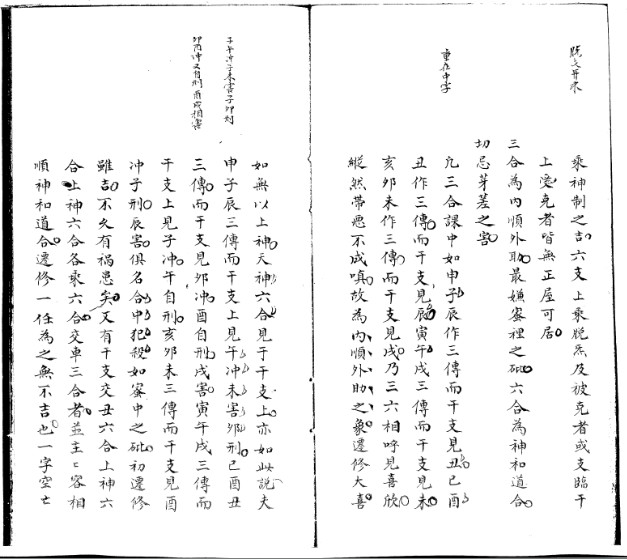 乘神制之吉六支上乘脫炁及被克者或支臨干
上受克者皆無正屋可居
三合為內順外助最嫌蜜裡之砒六合為神和道合
切忌芽差之害
重在中字
凡三合課中如申子辰作三傳而干支見丑巳酉
丑作三傳而干支見辰寅午戌三傳而干支見未
亥卯未作三傳而干支見戌乃三六相呼見喜欣
縱然帶惡不成嗔故為內順外助之象遷修大喜
如無以上神天神六合見于干支上亦如此說夫
子午冲子未害子卯刑
申子辰三傳而干支上見午冲未害卯刑巳酉丑
卯酉冲又自刑酉戌相害
三傳而干支見卯冲酉自刑戌害寅午戌三傳而
干支上見子冲午自刑亥卯未三傳而干支見酉
冲子刑辰害俱名合中犯殺如蜜中之砒初遷修
雖吉不久有禍患矣又有干支交丑六合上神六
合上神六合各乘六合交車三合者並主〻客相
順神和道合遷修一任為之無不吉也一字空亡